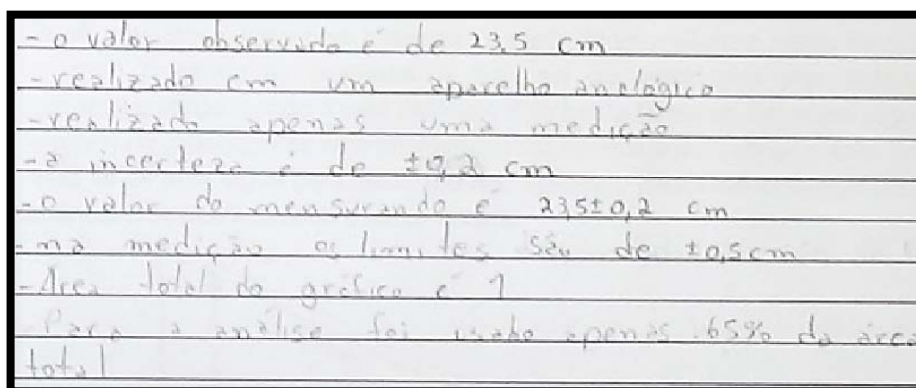 - o valor observado é de 23,5 cm
- realizado em um aparelho analógico
- realizado apenas uma medição
- a incerteza é de ±0,2 cm
- o valor do mensurando é 23,5±0,2 cm
- na medição os limites são de ±0,5cm
- Área total do gráfico é 1
- Para a análise foi usado apenas 65% da área
total